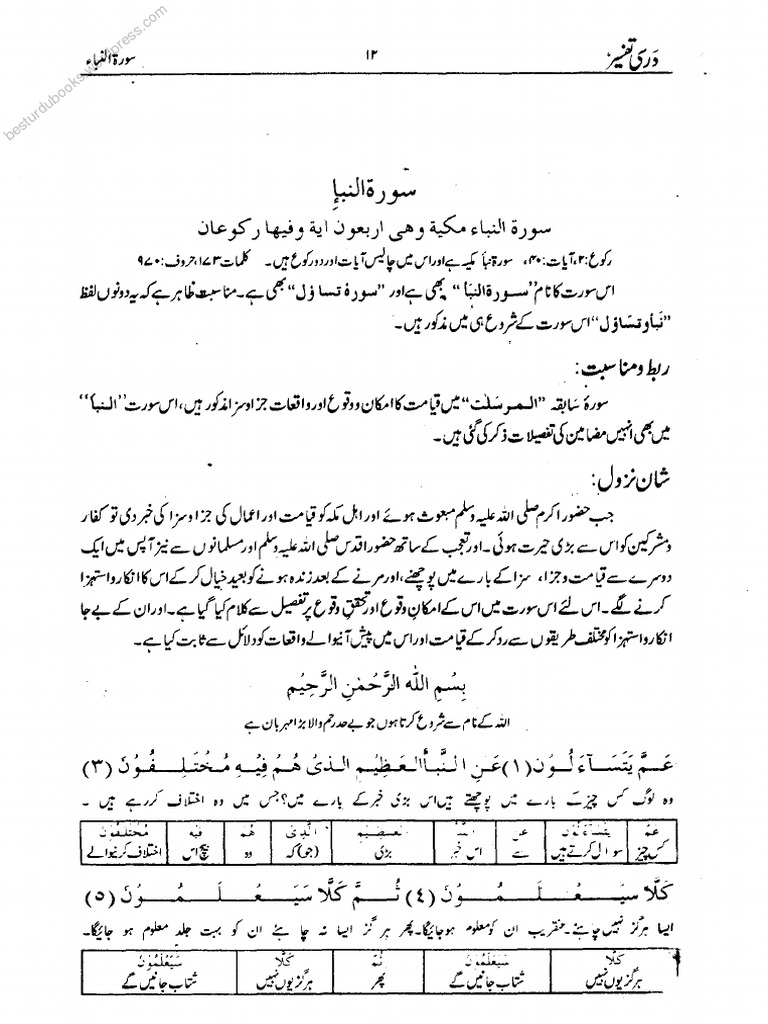 besturdubooks.wordpress.com
درسی تفسیر ۱۲ سورۃ النباء
سورۃ النبإ
سورۃ النباء مکیة وھی اربعون ایة وفیھا رکوعان
رکوع:۲، آیات:۴۰، سورۂ نبأ مکیہ ہے اور اس میں چالیس آیات اور دو رکوع ہیں۔ کلمات ۱۷۳، حروف:۹۷۰
اس سورت کا نام ”سورة النبأ“ بھی ہے اور ”سورہ تساؤل“ بھی ہے۔ مناسبت ظاہر ہے کہ یہ دونوں لفظ
”نبأ وتساؤل“ اس سورت کے شروع ہی میں مذکور ہیں۔
ربط ومناسبت:
سورۂ سابقہ ”المرسلت“ میں قیامت کا امکان ووقوع اور واقعات جزا وسزا مذکور ہیں، اس سورت ”النبأ“
میں بھی انہیں مضامین کی تفصیلات ذکر کی گئی ہیں۔
شان نزول:
جب حضور اکرم صلی اللہ علیہ وسلم مبعوث ہوئے اور اہل مکہ کو قیامت اور اعمال کی جزا وسزا کی خبر دی تو کفار
ومشرکین کو اس سے بڑی حیرت ہوئی۔ اور تعجب کے ساتھ حضور اقدس صلی اللہ علیہ وسلم اور مسلمانوں سے نیز آپس میں ایک
دوسرے سے قیامت وجزا، سزا کے بارے میں پوچھنے، اور مرنے کے بعد زندہ ہونے کو بعید خیال کر کے اس کا انکار واستہزا
کرنے لگے۔ اس لئے اس سورت میں اس کے امکانِ وقوع اور تحققِ وقوع پر تفصیل سے کلام کیا گیا ہے۔ اور ان کے بے جا
انکار واستہزا کو مختلف طریقوں سے رد کر کے قیامت اور اس میں پیش آنیوالے واقعات کو دلائل سے ثابت کیا ہے۔
بِسْمِ اللهِ الرَّحْمٰنِ الرَّحِيْمِ
اللہ کے نام سے شروع کرتا ہوں جو بے حد رحم والا بڑا مہربان ہے
عَمَّ يَتَسَآءَ لُوْن (۱) عَنِ النَّبَأ الْعَظِيْمِ الَّذِىْ هُمْ فِيْهِ مُخْتَلِفُوْنَ (۳)
وہ لوگ کس چیز کے بارے میں پوچھتے ہیں اس بڑی خبر کے بارے میں؟ جس میں وہ اختلاف کر رہے ہیں۔
عَمَّ يَتَسَآءَلُوْنَ عَنِ النَّبَأِ الْعَظِيْمِ الَّذِىْ هُمْ فِيْهِ مُخْتَلِفُوْنَ
کس چیز سوالی کرتے ہیں سے اس خبر بڑی (جو) کہ وہ بیچ اس اختلاف کرنیوالے
كَلَّا سَيَعْلَمُوْنَ (۴) ثُمَّ كَلَّا سَيَعْلَمُوْنَ (۵)
ایسا ہرگز نہیں چاہئے۔ عنقریب ان کو معلوم ہو جائیگا۔ پھر ہرگز ایسا نہ چاہئے ان کو بہت جلد معلوم ہو جائیگا۔
كَلَّا سَيَعْلَمُوْنَ ثُمَّ كَلَّا سَيَعْلَمُوْنَ
ہرگز یوں نہیں شتاب جانیں گے پھر ہرگز یوں نہیں شتاب جانیں گے